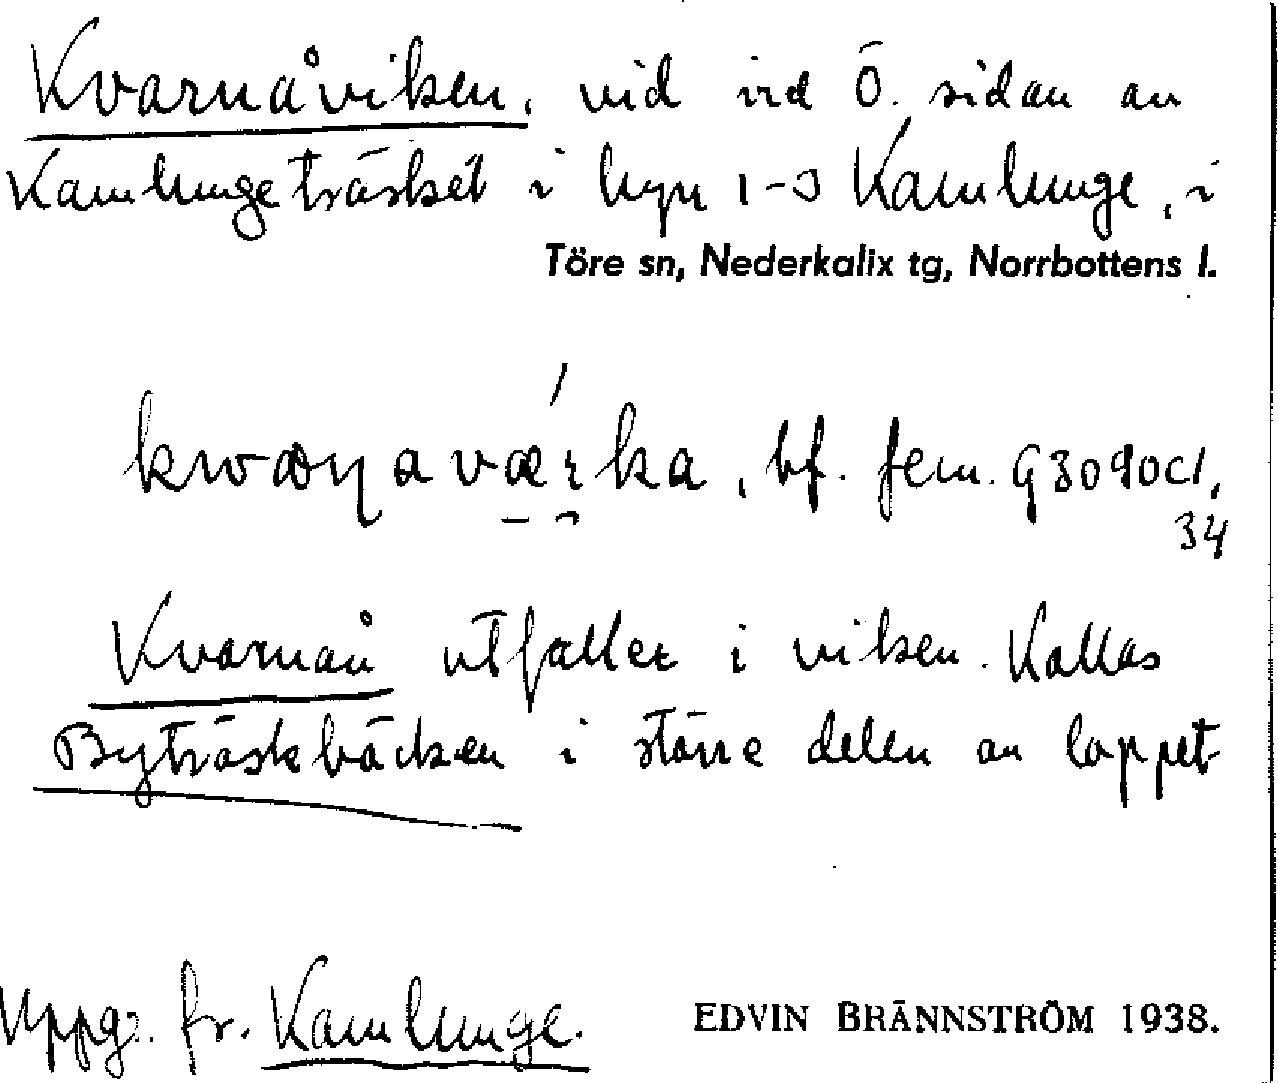 Kvarnåviken, vid vid Ö. sidan av
Kamlungeträsket i hyn 1-3 Kamlunge, i
Töre sn, Nederkalix tg, Norrbottens l.
bf. fem.
34
Kvarnån utfaller i viken. Kallas
Byträskbäcken i större delen av loppet
Uppg. fr. Kamlunge.
EDVIN BRÄNNSTRÖM 1938.